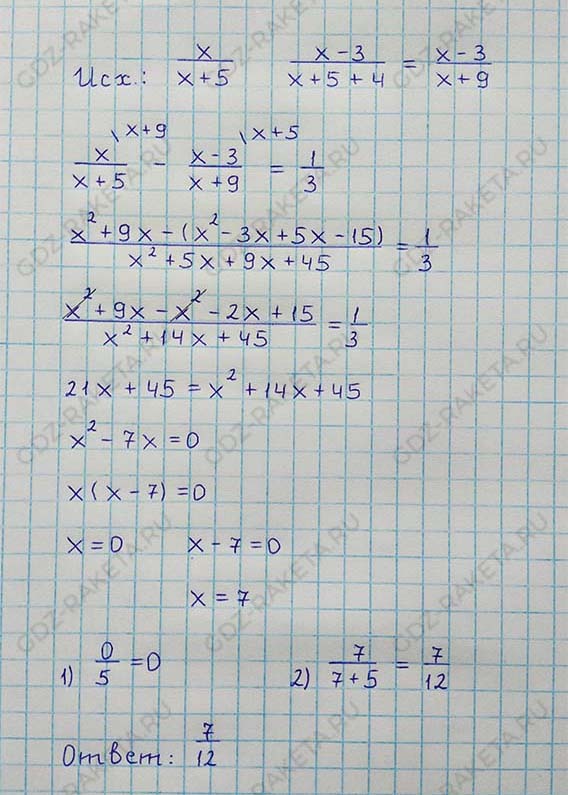 Исх.: x/(x+5) (x-3)/(x+5+4) = (x-3)/(x+9)
x/(x+5) \x+9 - (x-3)/(x+9) \x+5 = 1/3
(x²+9x-(x²-3x+5x-15))/(x²+5x+9x+45) = 1/3
(x²+9x-x²-2x+15)/(x²+14x+45) = 1/3
21x+45 = x²+14x+45
x²-7x=0
x(x-7)=0
x=0 x-7=0
x=7
1) 0/5 =0 2) 7/(7+5) = 7/12
Ответ: 7/12
GDZ-RAKETA.RU